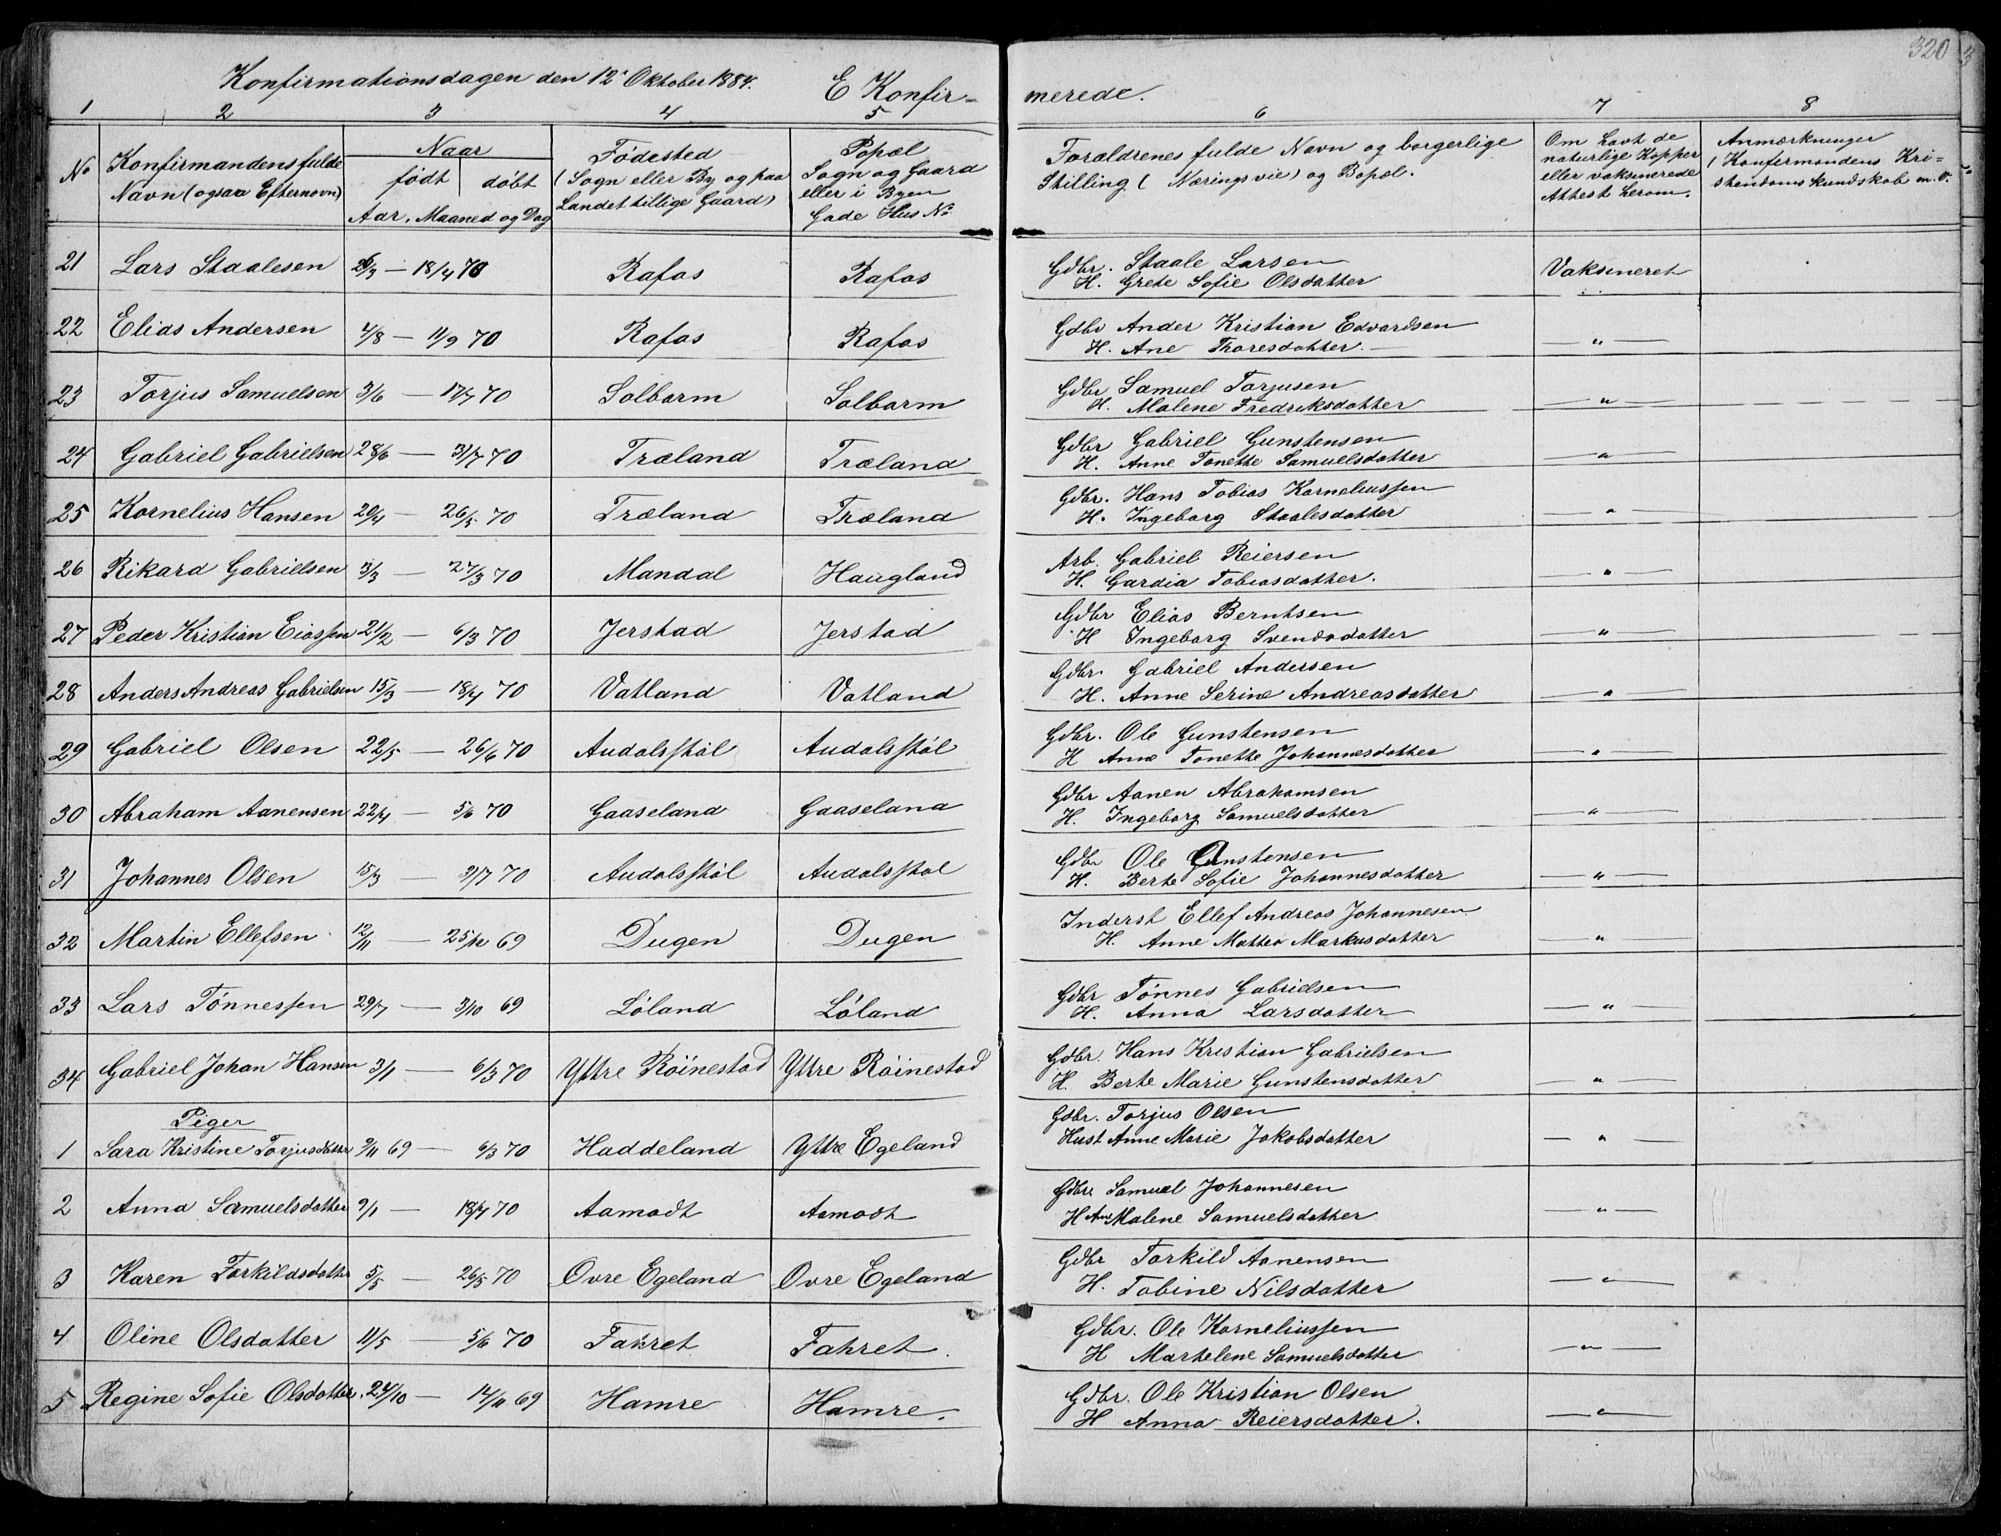 320
Konfirmationsdagen den 12' Oktober 1884.
E Konfirmerede.
1 2 3 4 5 6 7 8
No
Konfirmandens fulde
Navn (ogsaa Efternavn)
Naar
født | døbt
Aar, Maaned og Dag
Fødested
(Sogn eller By og paa
Landet tillige Gaard)
Popæl
Sogn og Gaard
eller i Byen
Gade Hus No
Forældrenes fulde Navn og borgerlige
Stilling (Næringsvei) og Bopæl.
Om havt de
naturlige Kopper
eller vaksinerede
Attest herom.
Anmærkninger
(Konfirmandens Kri=
stendomskundskab m. v.
21 Lars Staalesen — 18/4 70 Rafos Rafos Gdbr. Staale Larsen Vaksineret
H. Grete Sofie Olsdatter
22 Elias Andersen 4/8 — 11/9 70 Rafos Rafos Gdbr Ander Kristian Edvardsen — " —
H. Ane Tharesdatter.
23 Torjus Samuelsen 3/6 — 17/7 70 Solbarm Solbarm Gdbr Samuel Torjusen — " —
H. Malene Fredriksdatter
24 Gabriel Gabrielsen 28/6 — 31/7 70 Træland Træland Gdbr Gabriel Gunstensen — " —
H. Anne Tonette Samuelsdatter
25 Kornelius Hansen 20/4 — 26/5 70 Træland Træland Gdbr. Hans Tobias Korneliussen — " —
H. Ingeborg Staalesdatter
26 Rikard Gabrielsen 3/3 — 27/3 70 Mandal Haugland Arb. Gabriel Reiersen — " —
H. Gardia Tobiasdatter.
27 Peder Kristian Eiassen 21/2 — 6/3 70 Jerstad Jerstad Gdbr Elias Berntsen — " —
H Ingeborg Svendsdatter
28 Anders Andreas Gabrielsen 15/3 — 18/4 70 Vatland Vatland Gdbr. Gabriel Andersen — " —
H. Anne Serine Andreasdatter
29 Gabriel Olsen 22/5 — 26/6 70 Audalsstøl Audalsstøl Gdbr. Ole Gunstensen — " —
H Anne Tonette Johannesdatter
30 Abraham Aanensen 22/4 — 5/6 70 Gaaseland Gaaseland Gdbr Aanen Abrahamsen — " —
H. Ingeborg Samuelsdatter
31 Johannes Olsen 15/3 — 2/7 70 Audalsstøl Audalsstøl Gdbr Ole Gunstensen — " —
H. Berte Sofie Johannesdatter
32 Martin Ellefsen 12/11 — 25/12 69 Dugen Dugen Inderst Ellef Andreas Johannesen — " —
H. Anne Mattea Markusdatter
33 Lars Tønnessen 29/7 — 3/10 69 Løland Løland Gdbr Tønnes Gabrielsen — " —
H. Anna Larsdatter
34 Gabriel Johan Hansen 3/1 — 6/3 70 Yttre Röinestad Yttre Röinestad Gdbr. Hans Kristian Gabrielsen — " —
H. Berte Marie Gunstensdatter
Piger
1 Sara Kristine Torjusdatter 9/11 69 — 6/3 70 Haddeland Yttre Egeland Gdbr. Torjus Olsen — " —
Hust Anne Marie Jakobsdatter
2 Anna Samuelsdatter 9/1 — 18/4 70 Aamodt Aamodt Gdbr Samuel Johannesen — " —
H Ane Malene Samuelsdatter
3 Karen Torkildsdatter 5/5 — 26/5 70 Ovre Egeland Ovre Egeland Gdbr Torkild Aanensen — " —
H. Tobine Nilsdatter
4 Oline Olsdatter 11/5 — 5/6 70 Fahret Fahret. Gdbr. Ole Korneliussen — " —
H Martelene Samuelsdatter
5 Regine Sofie Olsdatter. 24/10 — 14/11 69 Hamre Hamre. Gdbr. Ole Kristian Olsen — " —
H Anna Reiersdatter.